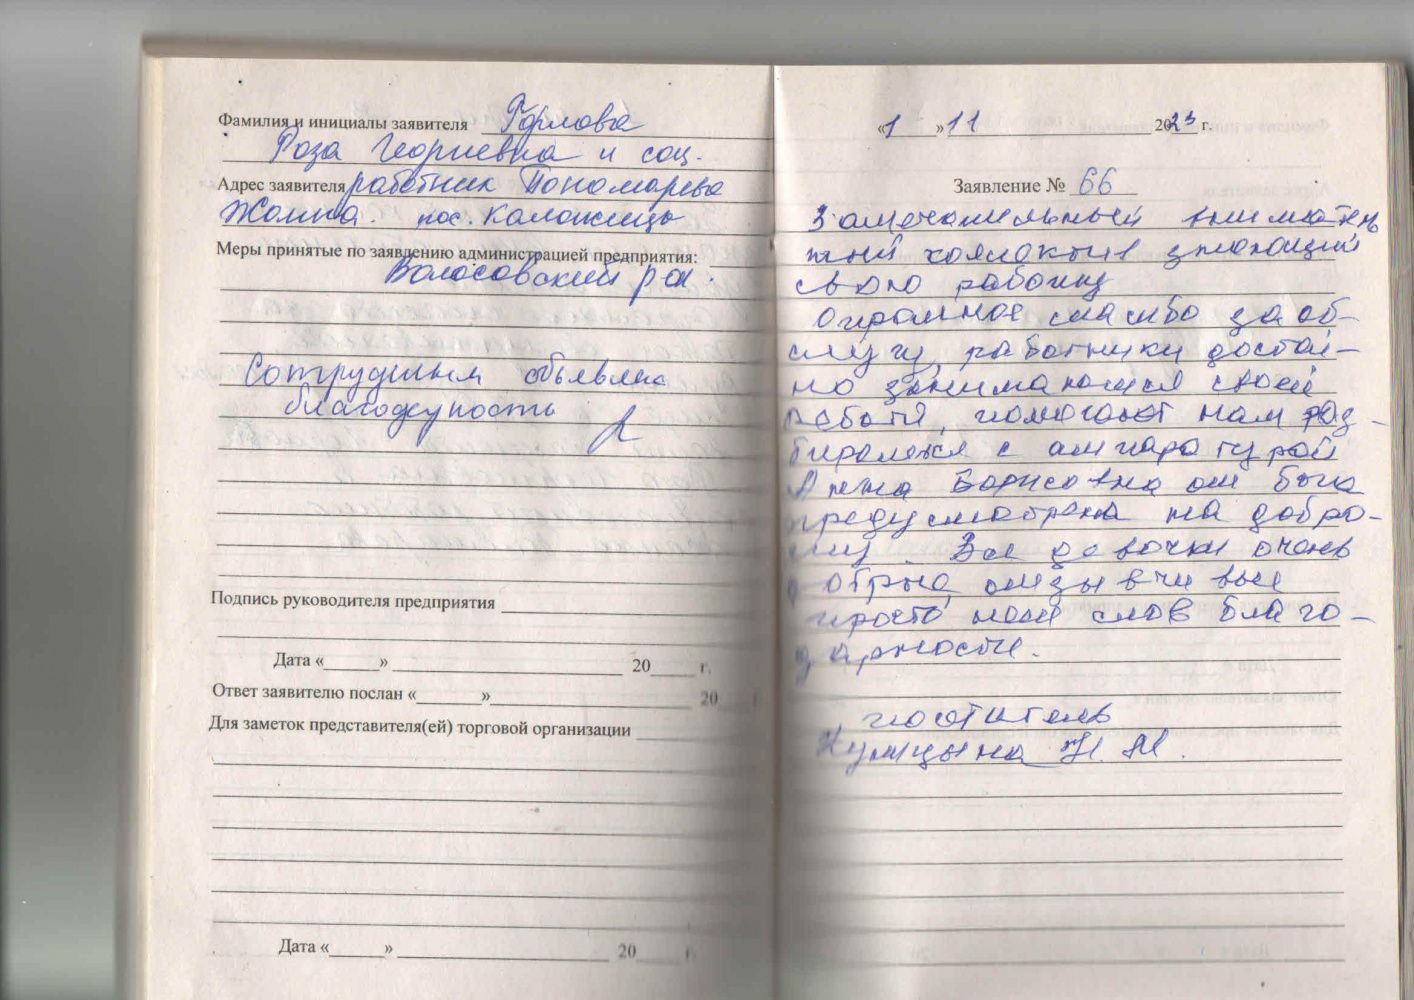 Фамилия и инициалы заявителя Горлова
Роза Георгиевна и соц.
Адрес заявителя работник Пономарева
Жанна. пос. Каложицы
Меры принятые по заявлению администрацией предприятия:
Волосовский рон.
Сотрудникам объявлена
благодарность
Подпись руководителя предприятия
Дата «______» 20____ г.
Ответ заявителю послан «______» 20____ г.
Для заметок представителя(ей) торговой организации
Дата «______» 20____ г.
«1» 11 2023 г.
Заявление № 66
Замечательный вниматель
ный коллектив знающий
свою работу
Огромное спасибо за об-
слугу, работники достой-
но занимаются своей
работй, помогают нам раз-
бираться с аппаратурой
Анна Борисовна
предусмотрена на добро-
му. Все девочки очень
добрые, отзывчивые
просто нет слов благо-
дарности.
посетитель
Н. М.